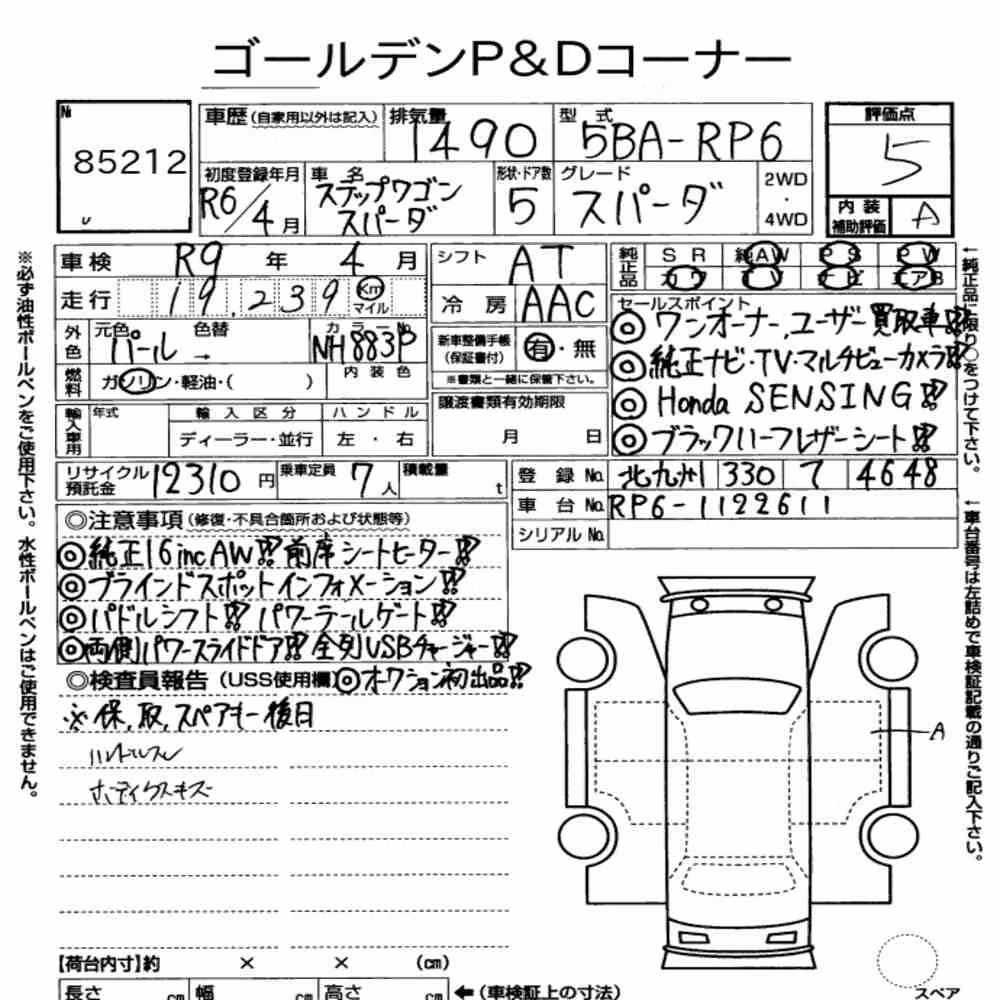 ゴールデンP&Dコーナー
№ 85212
車歴(自家用以外は記入) 排気量 1490 型式 5BA-RP6
評価点 5
初度登録年月 R6/4月 車名 ステップワゴン スパーダ 形状・ドア数 5 グレード スパーダ 2WD・4WD
内装補助評価 A
車検 R9年 4月 シフト AT
純正品 SR 純AW PS PW
カワ ナビ エアB
走行 19,239 Km マイル 冷房 AAC
セールスポイント
外色 元色 パール → 色替 カラーNo. NH883P
新車整備手帳(保証書付) 有・無
内装色
※書類と一緒に保管下さい。
燃料 ガソリン・軽油・( )
◎ワンオーナー、ユーザー買取車!!
◎純正ナビ・TV・マルチビューカメラ!!
◎Honda SENSING!!
◎ブラックハーフレザーシート!!
輸入車用 年式 輸入区分 ディーラー・並行 ハンドル 左・右
譲渡書類有効期限 月 日
リサイクル預託金 12310円 乗車定員 7人 積載量 t
登録No. 北九州 330 4648
車台No. RP6-1122611
シリアルNo.
◎注意事項(修復・不具合箇所および状態等)
◎純正16incAW!! 前席シートヒーター!!
◎ブラインドスポットインフォメーション!!
◎パドルシフト!! パワーテールゲート!!
◎両側パワースライドドア!! 全列USBチャージャー!!
◎検査員報告(USS使用欄) ◎オークション初出品!!
※保、取、スペアキー後日
ハンドルスレ
ボディクスキズ
A
【荷台内寸】約 × × (cm)
長さ cm 幅 cm 高さ cm ←(車検証上の寸法)
スペア
※必ず油性ボールペンをご使用下さい。水性ボールペンはご使用できません。
←純正品に限り○をつけて下さい。
←車台番号は左詰めで車検証記載の通りご記入下さい。